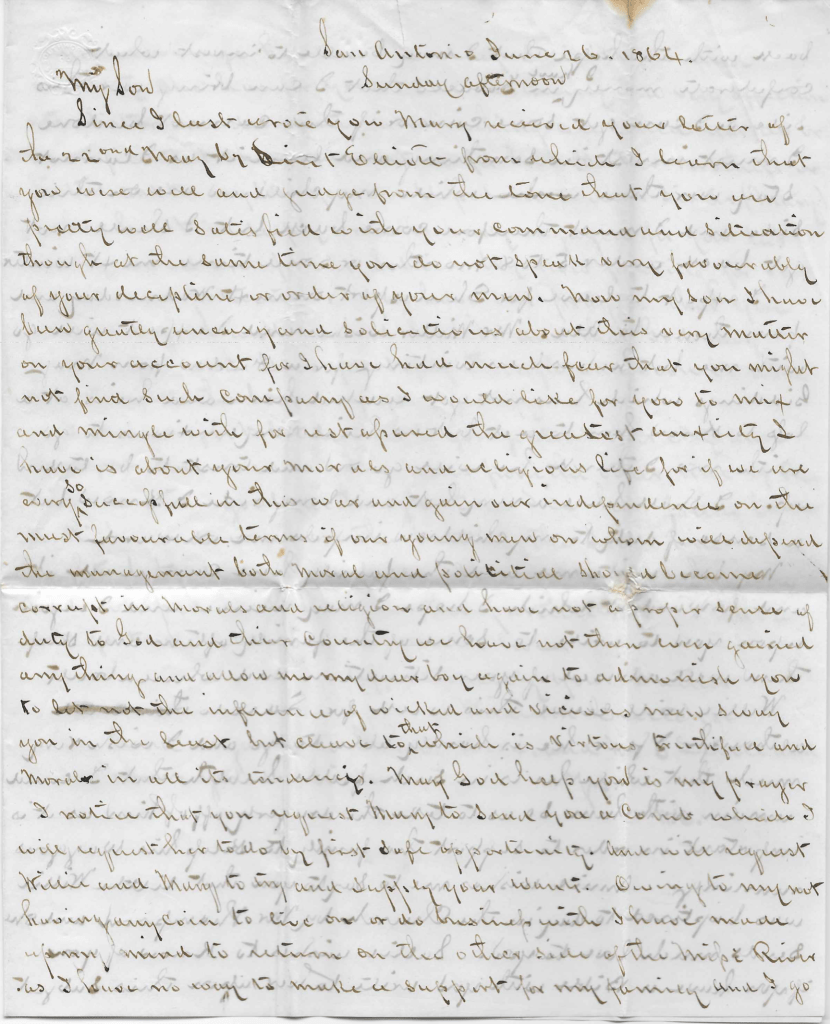 San Antonio June 26. 1864.
My Son Sunday afternoon
Since I last wrote you Mary received your letter of
the 22nd May by Lieut Elliott from which I learn that
you were well and judge from the tone that you are
pretty well satisfied with your command and situation
though at the same time you do not speak very favourably
of your decipline or order of your men. Now my son I have
been greatly uneasy and solicitious about this very matter
on your account for I have had much fear that you might
not find such company as I would like for you to mix
and mingle with for rest assured the greatest anxiety I
have is about your morals and religious life for if we are
ever so successfull in this war and gain our independence on the
most favourable terms if our young men on whom will depend
the management both moral and political should become
corrupt in morals and religion and have not a proper sense of
duty to God and their Country we have not then even gained
any thing and allow me my dear boy again to admonish you
to let not the influence of wicked and vicious men sway
you in the least but cleave to that which is virtous truthfull and
moral in all its tendencies. May God help you is my prayer
I notice that you request Mary to send you a Comb which I
will request her to do by first safe opportunity. and will request
Willie and Mary to try and supply your wants. Owing to my not
having any coin to live on or do business with I have made
up my mind to return on the other side of the Miss River
as I have no way to make a support for my family and I go